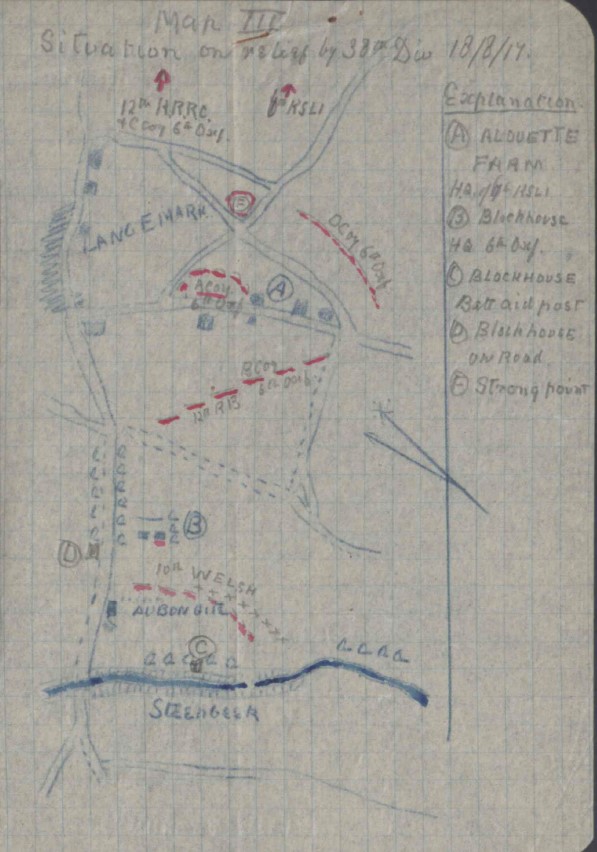 Map III
Situation on relief by 38th Div 18/8/17.
12th KRRC
+ C Coy 6th Oxf.
6th KSLI
Explanation.
A ALOUETTE
FARM
HQ 6th KSLI
B Blockhouse
HQ 6th Oxf.
C BLOCKHOUSE
Batt aid post
D Blockhouse
on Road.
E Strong point
E
LANGEMARK
D Coy 6th Oxf
A Coy
6th Oxf
A
B Coy
6th Oxf
12th RB
B
D
10th WELSH
AU BON GITE
C
STEENBEEK